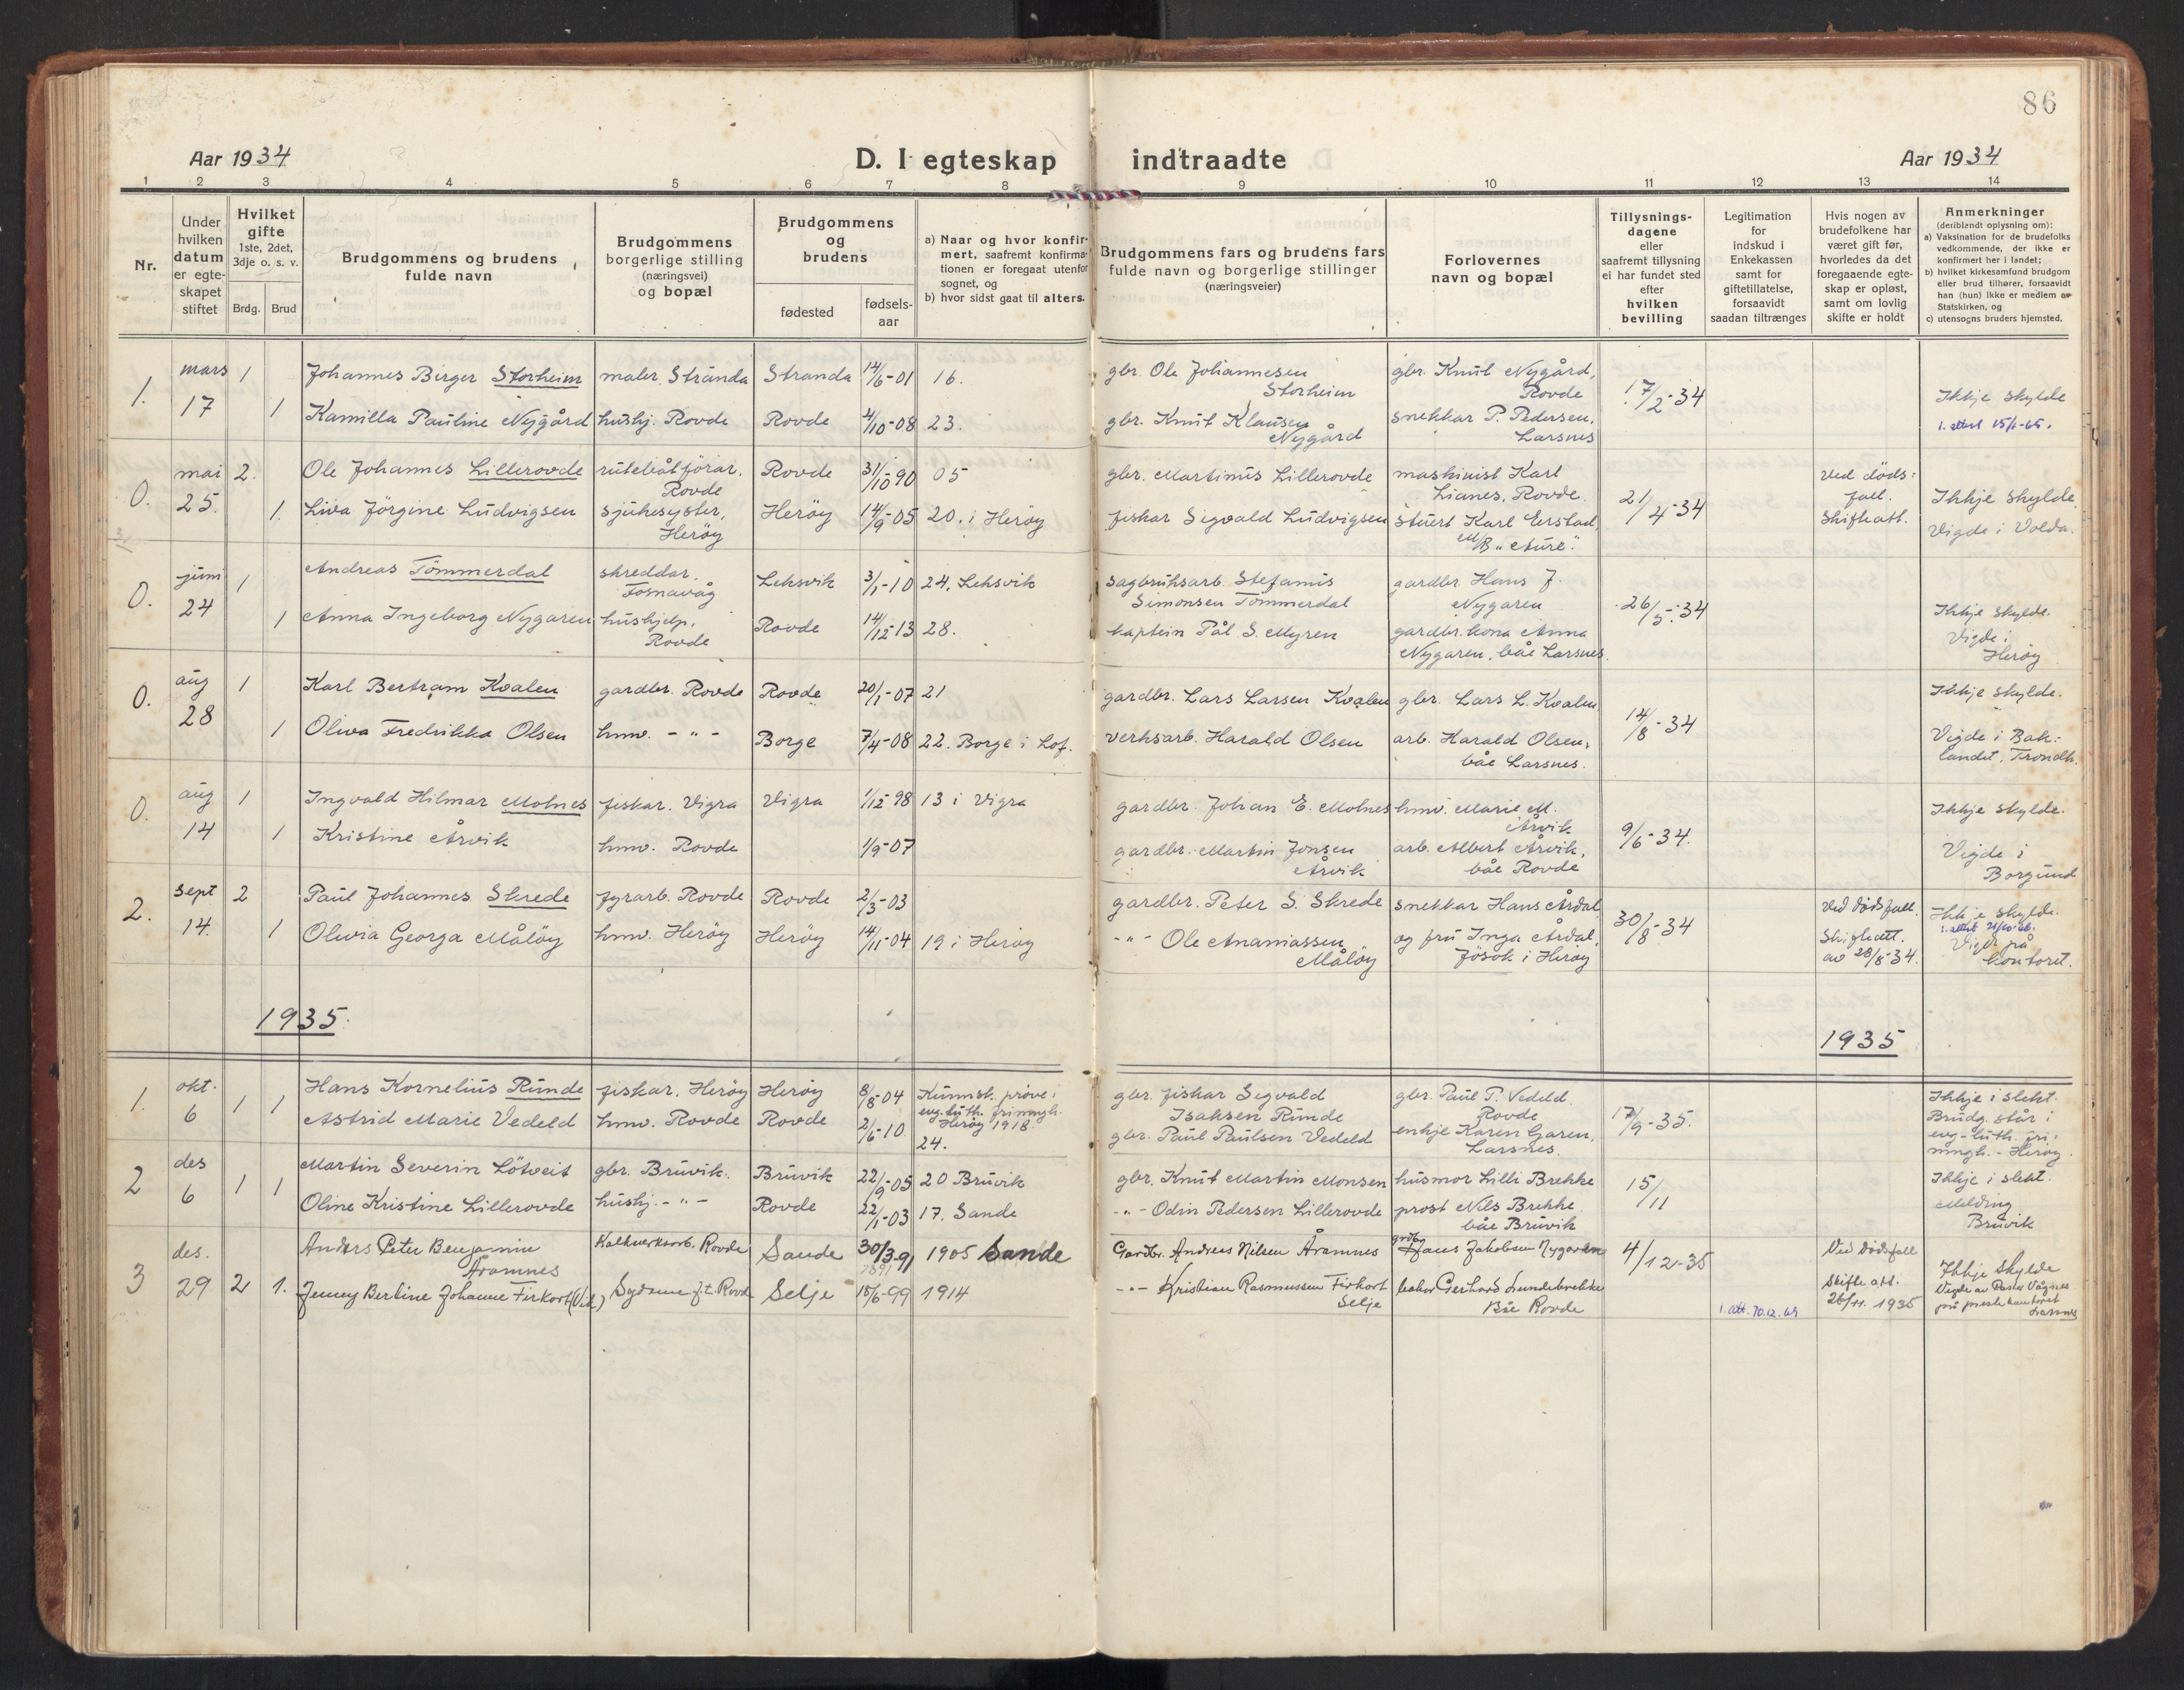 86
Aar 1934 D. I egteskap indtraadte Aar 1934
1 2 3 4 5 6 7 8 9 10 11 12 13 14
Nr.
Under hvilken datum er egteskapet stiftet
Hvilket gifte 1ste, 2det, 3dje o. s. v.
Brdg. Brud
Brudgommens og brudens fulde navn
Brudgommens borgerlige stilling (næringsvei) og bopæl
Brudgommens og brudens
fødested
fødsels-aar
a) Naar og hvor konfirmert, saafremt konfirmationen er foregaat utenfor sognet, og
b) hvor sidst gaat til alters.
Brudgommens fars og brudens fars fulde navn og borgerlige stillinger (næringsveier)
Forlovernes navn og bopæl
Tillysningsdagene eller saafremt tillysning ei har fundet sted efter hvilken bevilling
Legitimation for indskud i Enkekassen samt for giftetillatelse, forsaavidt saadan tiltrænges
Hvis nogen av brudefolkene har været gift før, hvorledes da det foregaaende egteskap er opløst, samt om lovlig skifte er holdt
Anmerkninger (deriblandt oplysning om):
a) Vaksination for de brudefolks vedkommende, der ikke er konfirmert her i landet;
b) hvilket kirkesamfund brudgom eller brud tilhører, forsaavidt han (hun) ikke er medlem av Statskirken, og
c) utensogns bruders hjemsted.
1. mars 17 1 Johannes Birger Storheim maler, Stranda Stranda 14/6-01 16. gbr. Ole Johannesen Storheim gbr. Knut Nygård, Rovde 17/2-34 Ikkje skylde
1 Kamilla Pauline Nygård hushj. Rovde Rovde 4/10-08 23. gbr. Knut Klausen Nygård snekkar P. Pedersen, Larsnes
0. mai 25. 2. Ole Johannes Lillerovde rutebåtförar. Rovde Rovde 31/10-90 05 gbr. Martinus Lillerovde maskinist Karl Lianes, Rovde. 21/4-34 Ved dödsfall. Skifteatt. Ikkje skylde
1. Liva Jörgine Ludvigsen sjukesyster, Heröy Heröy 14/9-05 20. i Heröy fiskar Sigvald Ludvigsen stuert Karl Erstad, M/B "Aure". Vigde i Volda.
0. juni 24 1 Andreas Tömmerdal skreddar. Fosnavåg Leksvik 3/1-10 24. Leksvik sagbruksarb. Stefanus Simonsen Tömmerdal gardbr Hans J. Nygaren 26/5-34 Ikkje skylde.
1 Anna Ingeborg Nygaren hushjelp, Rovde Rovde 14/12-13 28. kaptein Pål S. Myren gardbr. kona Anna Nygaren, båe Larsnes. Vigde i Heröy
0. aug 28 1 Karl Bertram Kvalen gardbr. Rovde Rovde 20/1-07 21 gardbr. Lars Larsen Kvalen gbr. Lars L. Kvalen, 14/8-34 Ikkje skylde.
1 Oliva Fredrikka Olsen hmv. - " - Borge 7/4-08 22. Borge i Lof. verksarb. Harald Olsen arb. Harald Olsen, båe Larsnes. Vigde i Baklandet, Trondh.
0. aug 14 1 Ingvald Hilmar Molnes fiskar. Vigra Vigra 1/12-98 13 i Vigra gardbr. Johan E. Molnes hmv. Marie M. Årvik 9/6-34. Ikkje skylde.
1 Kristine Årvik hmv. Rovde 1/9-07 gardbr. Martin Jonsen Årvik arb. Albert Årvik, båe Rovde Vigde i Borgund
2. sept 14. 2 Paul Johannes Skrede fyrarb. Rovde Rovde 2/3-03 gardbr. Peter S. Skrede snekkar Hans Årdal 30/8-34 Ved dødsfall. Skifteatt. av 28/8-34. Ikkje skylde.
1 Olivia Georga Målöy hmv. Heröy Heröy 14/11-04 19 i Heröy - " - Ole Ananiassen Målöy og fru Inga Årdal, Jösok i Heröy Vigde på kontoret.
1935. 1935
1. okt. 6 1 1 Hans Kornelius Runde fiskar, Heröy Heröy 8/8-04 Kunnsk. pröve i evg. luth. frimengh. Heröy 1918. gbr. fiskar Segvald Isaksen Runde gbr. Paul P. Vedeld. Rovde 17/9-35. Ikkje i slekt. Brudg. står i evg.-luth. frimengh. - Heröy.
Astrid Marie Vedeld hmv. Rovde Rovde 2/6-10 24. gbr. Paul Paulsen Vedeld enkje Karen Garen, Larsnes.
2 des 6 1 1 Martin Severin Lötveit gbr. Bruvik. Bruvik 22/9-05 20 Bruvik gbr. Knut Martin Monsen husmor Lilli Brekke 15/11 Ikkje i slekt.
Oline Kristine Lillerovde hushj. - " - Rovde 22/1-03 17. Sande - " - Odin Pedersen Lillerovde prost Nils Brekke båe Bruvik Melding Bruvik
3 des. 29 2 1. Anders Peter Benjamin Aramnes Kalkverksarb. Rovde Sande 30/3-91 1905 Sande Gardbr. Andreas Nilsen Åramnes grdbr Hans Jakobsen Nygaren 4/12-35 Ved Dødsfall Skifte att. 26/11. 1935 Ikkje Skylde
Jenny Bertine Johanne Firkort Sydame f.t. Rovde Selje 15/6-99 1914 - " - Kristian Rasmussen Firkort Selje Gerhard Lundebrekke Båe Rovde Larsnes